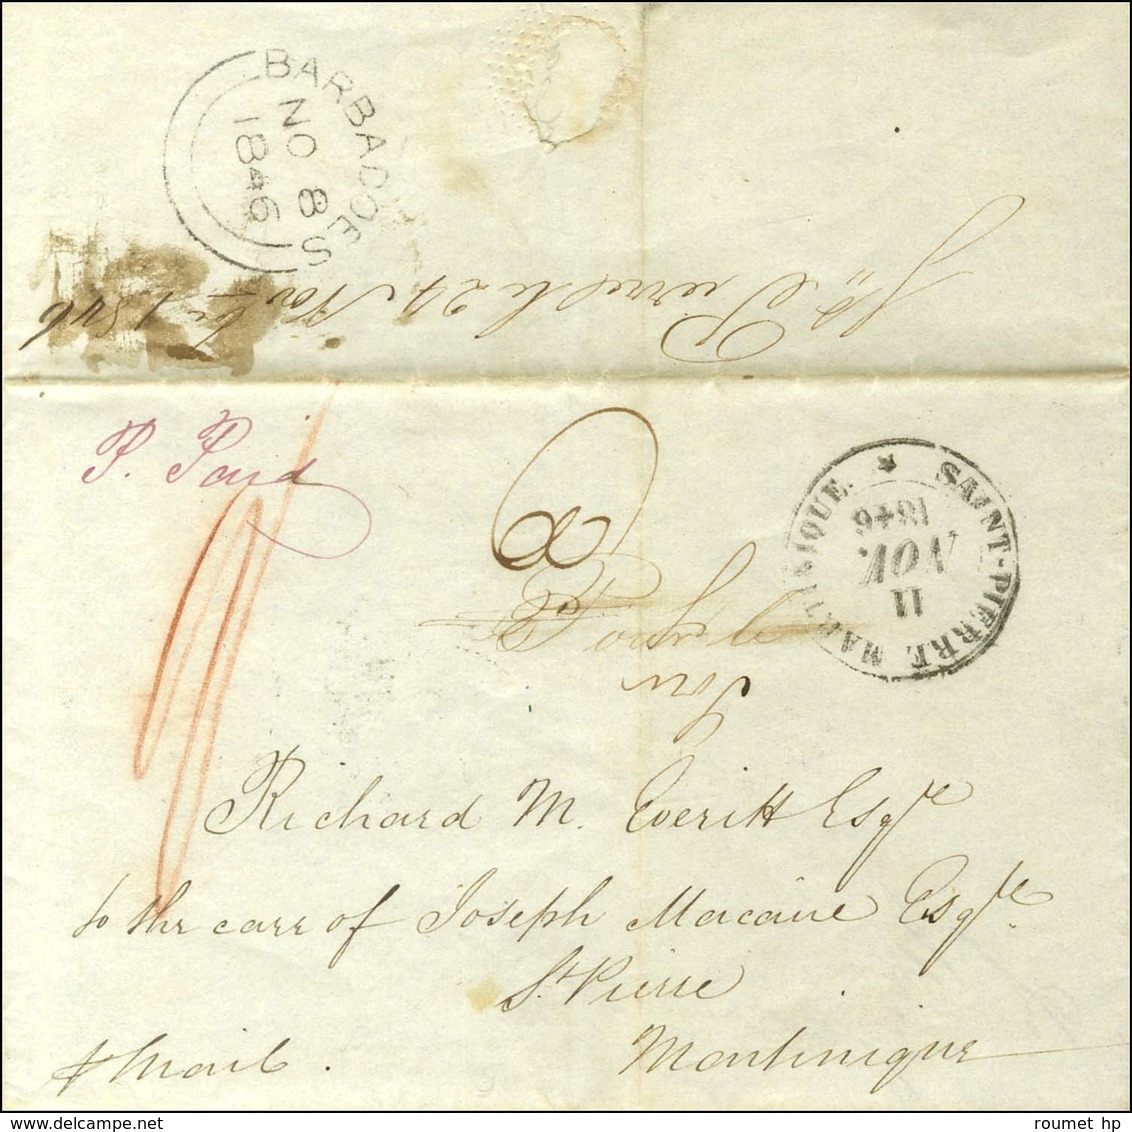 BARBADOES
NO 8
1846
St Pierre le 24 Nov 1846
P. Paid
8
SAINT-PIERRE MARTINIQUE.
11
NOV.
1846
Richard M. Everitt Esqre
to the care of Joseph Macaire Esqre
St Pierre
Martinique
p Mail.
roumet hp